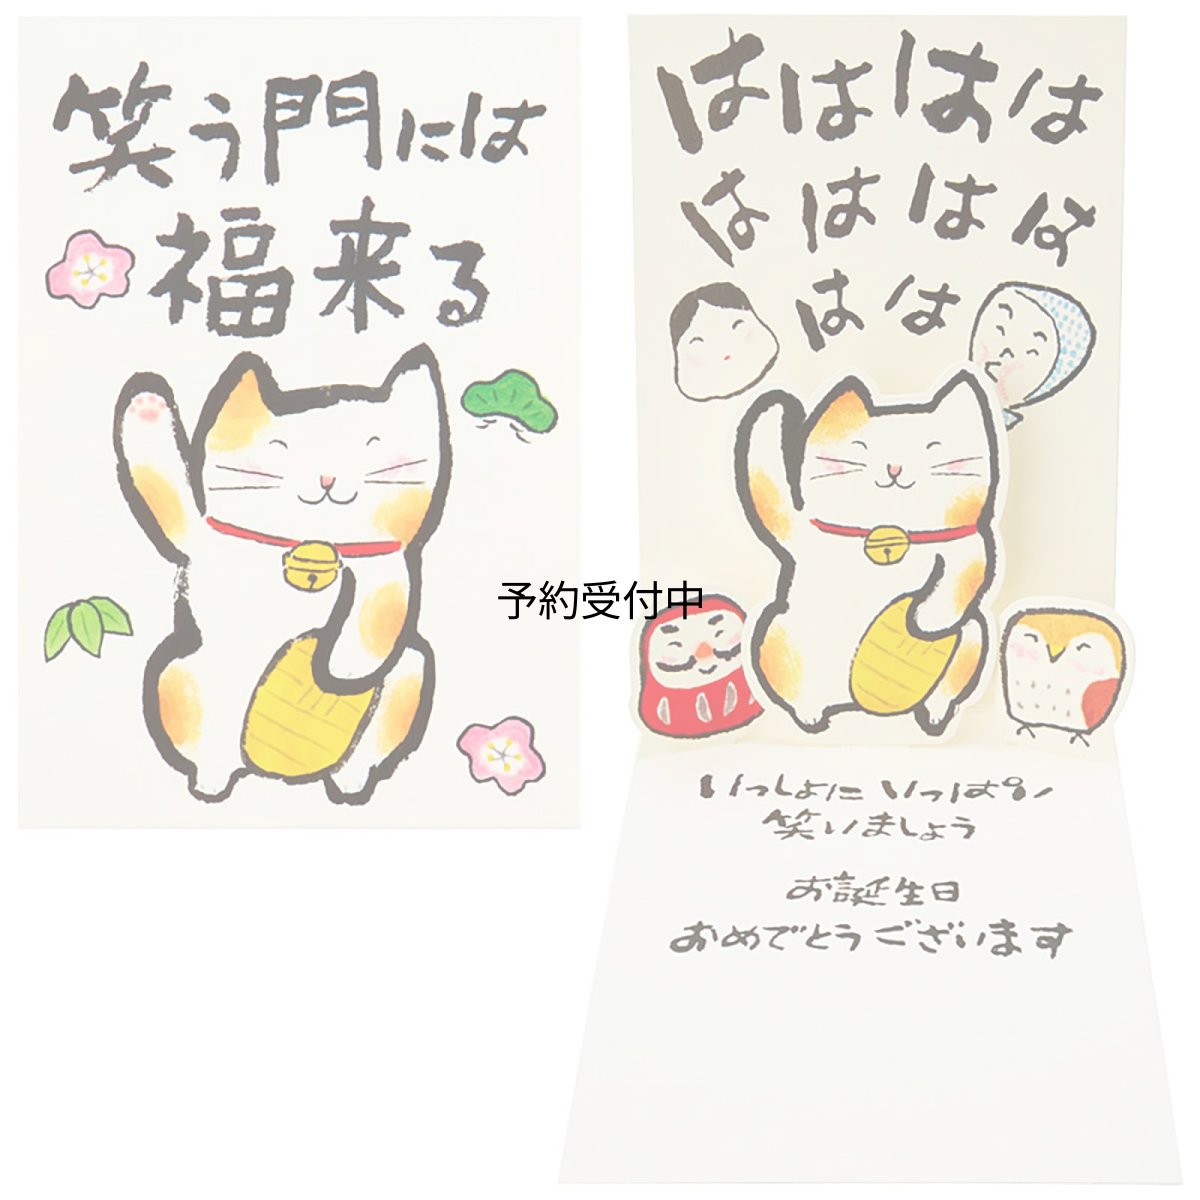 笑う門には
福来る
はははは
はははは
はは
予約受付中
いっしょに いっぱい
笑いましょう
お誕生日
おめでとうございます